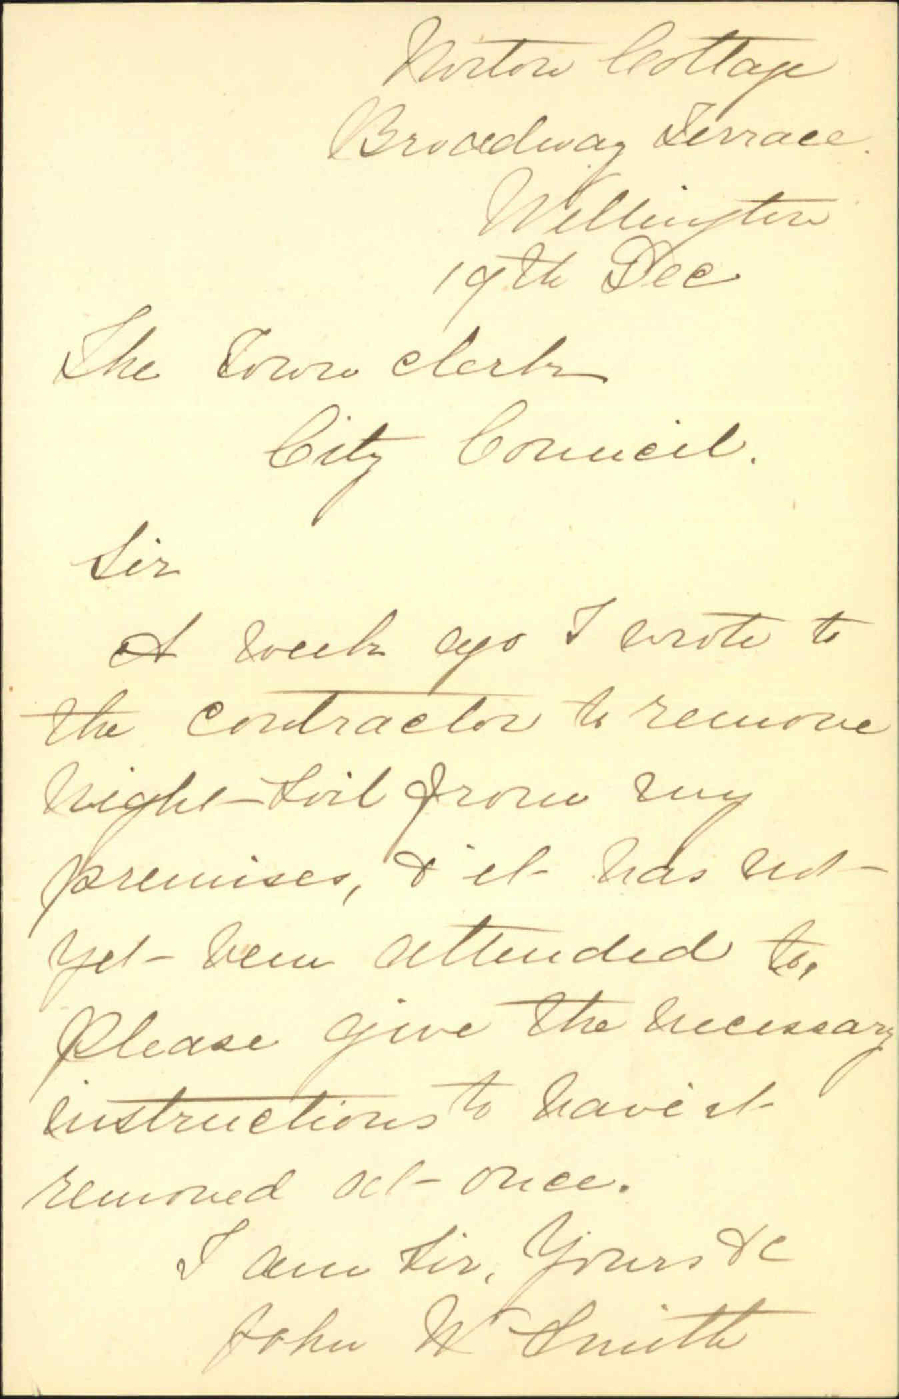 Norton Cottage
Broadway Terrace.
Wellington
19th Dec
The Town Clerk
City Council.
Sir
A week ago I wrote to
the contractor to remove
Night-Soil from my
premises, & it has not
yet been attended to,
Please give the necessary
instructions to have it
removed at once.
I am Sir, Yours &c
John Wm Smith